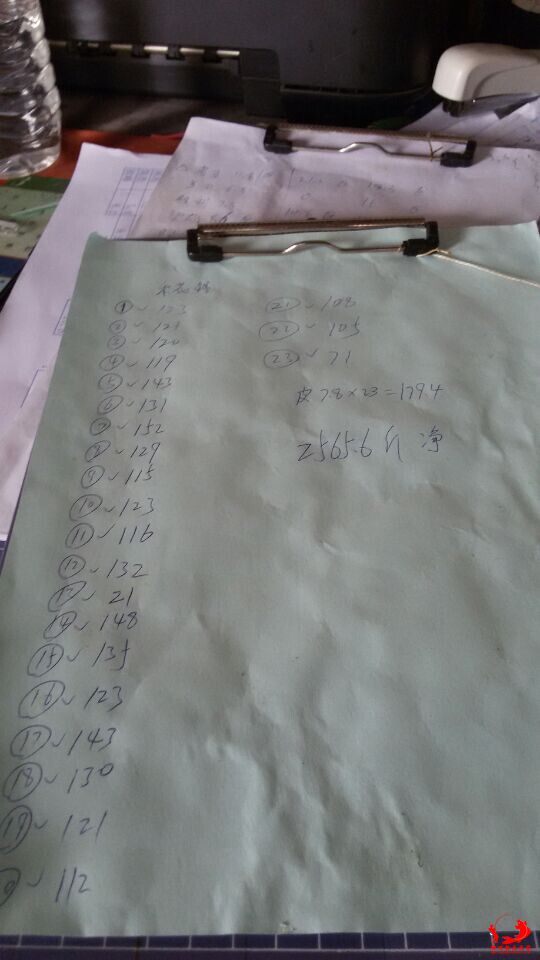 ① ✓ 123
② ✓ 125
③ ✓ 120
④ ✓ 119
⑤ ✓ 143
⑥ ✓ 131
⑦ ✓ 152
⑧ ✓ 129
⑨ ✓ 115
⑩ ✓ 123
⑪ ✓ 116
⑫ ✓ 132
⑬ ✓ 21
⑭ ✓ 148
⑮ ✓ 135
⑯ ✓ 123
⑰ ✓ 143
⑱ ✓ 130
⑲ ✓ 121
✓ 112
㉑ ✓ 108
㉒ ✓ 105
㉓ ✓ 71
皮 7.8×23=179.4
2565.6斤 净